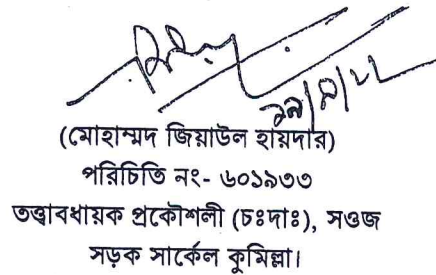 (মোহাম্মদ জিয়াউল হায়দার)
পরিচিতি নং- ৬০১৯৩৩
তত্ত্বাবধায়ক প্রকৌশলী (চঃদাঃ), সওজ
সড়ক সার্কেল কুমিল্লা।